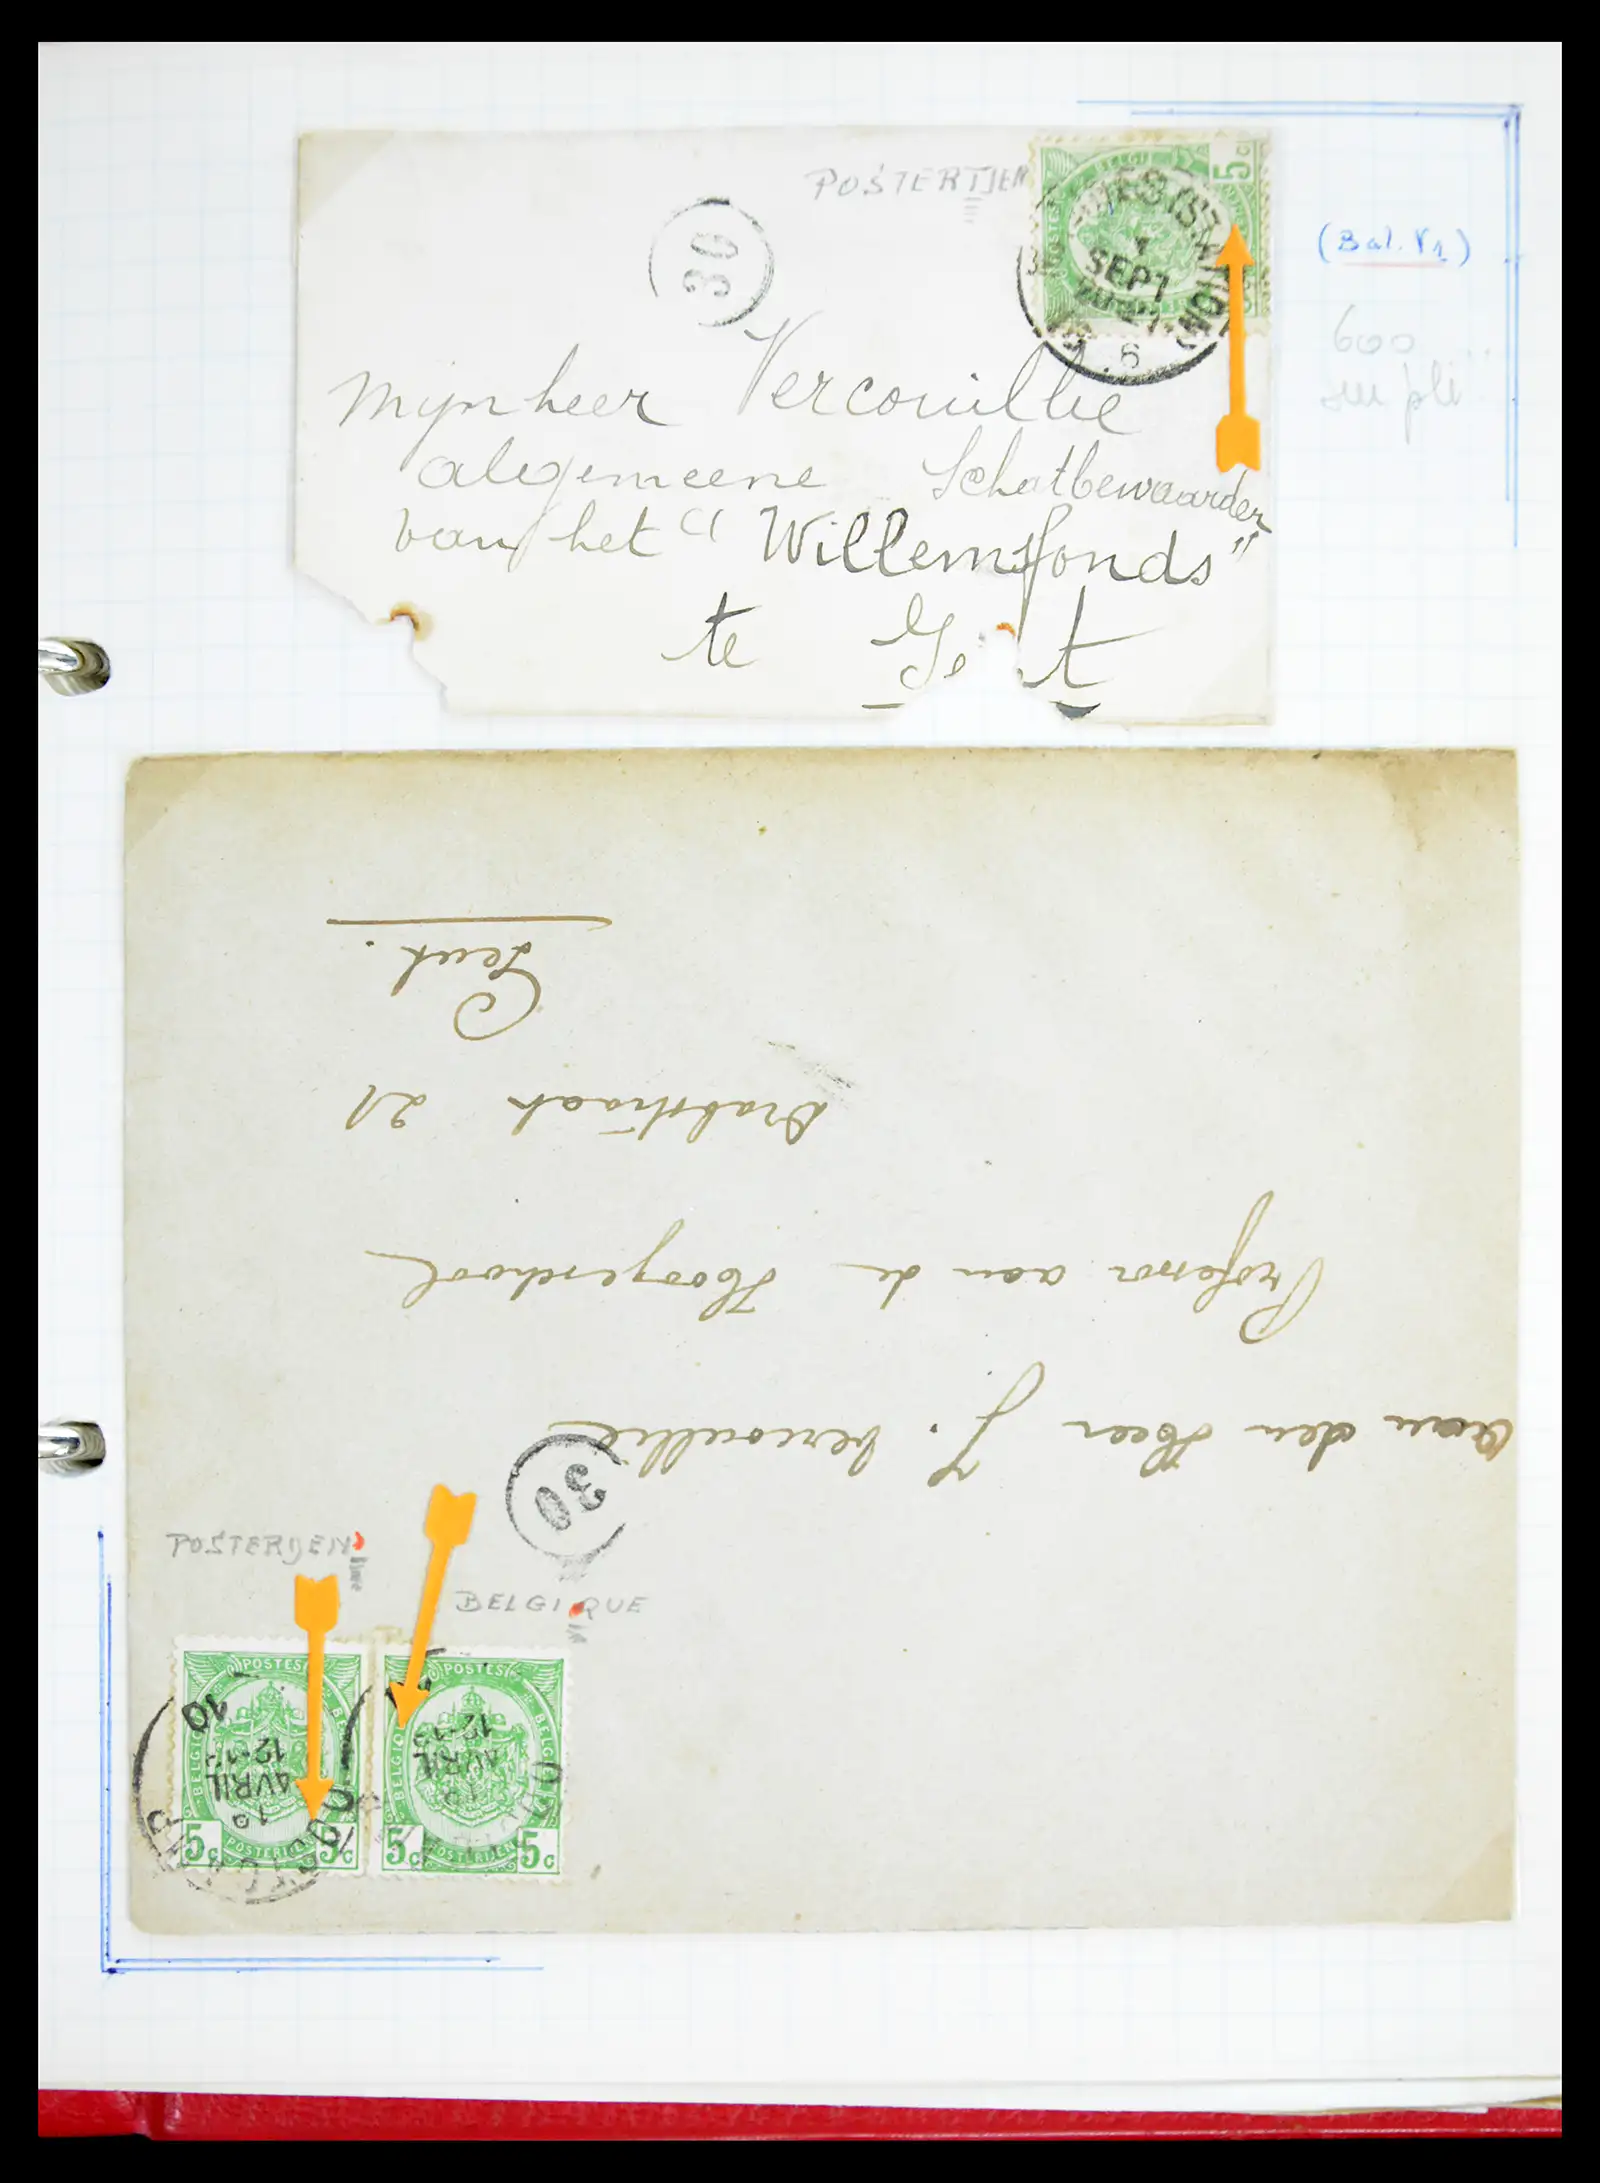 POSTERIJEN
30
5c
SEPT
6
(Bal. V1)
600
sur pli
Mijnheer Vercouillie
algemeene Schatbewaarder
van het "Willemsfonds"
te G t
Aan den Heer J. Vercoullie
Professor aan de Hoogeschool
Brabstraat 21
Gent.
30
POSTERIJEN
BELGIQUE
POSTES
BELGIQUE
POSTERIJEN
5c
5c
10
12-13
AVRIL
19
POSTES
BELGIQUE
5c
5c
12-13
AVRIL